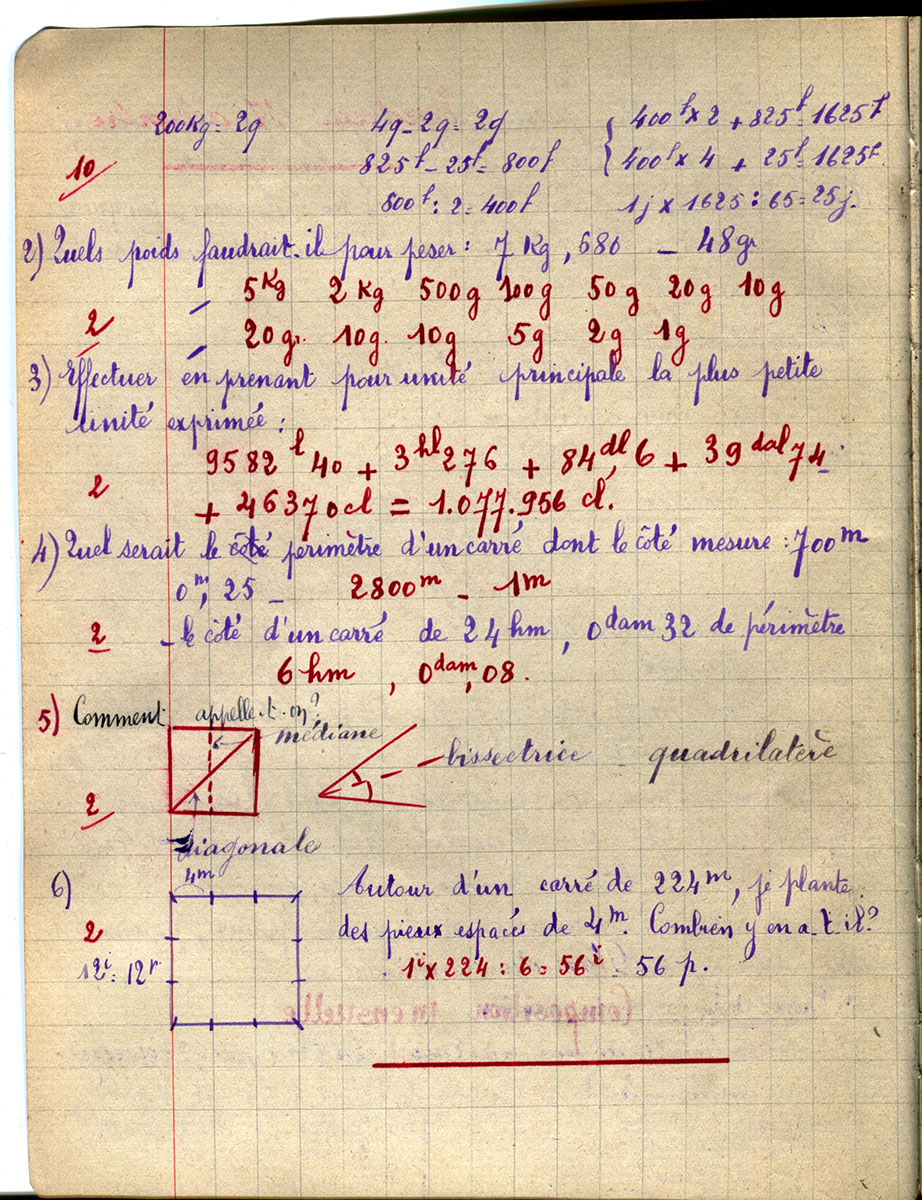 200Kg = 2q 4q - 2q = 2q 400f x 2 + 825f = 1625f
10 825f - 25f = 800f 400f x 4 + 25f = 1625f.
800f : 2 = 400f 1j x 1625 : 65 = 25j.
2) Quels poids faudrait-il pour peser : 7 Kg, 680 _ 48gr
5Kg 2 Kg 500g 100g 50g 20g 10g
2 20gr. 10g. 10g 5g 2g 1g
3) Effectuer en prenant pour unité principale la plus petite
unité exprimée :
9582 l 40 + 3 hl 276 + 84 dl, 6 + 39 dal 74
2 + 46370cl = 1.077.956 cl.
4) Quel serait le côté périmètre d'un carré dont le côté mesure : 700m
0m, 25 _ 2800m _ 1m
2 - le côté d'un carré de 24 hm, 0dam 32 de périmètre
6 hm, 0dam, 08.
5) Comment appelle-t-on ?
médiane
bissectrice _ quadrilatère
2
diagonale
4m
6) Autour d'un carré de 224m, je plante
2 des pieux espacés de 4m. Combien y en a-t-il ?
12i = 12p 1i x 224 : 6 = 56i = 56 p.